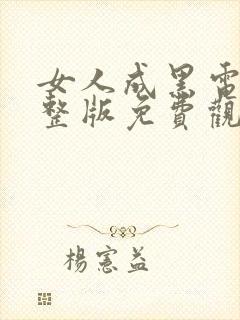 女人成黑電
整版免費觀
楊憲益